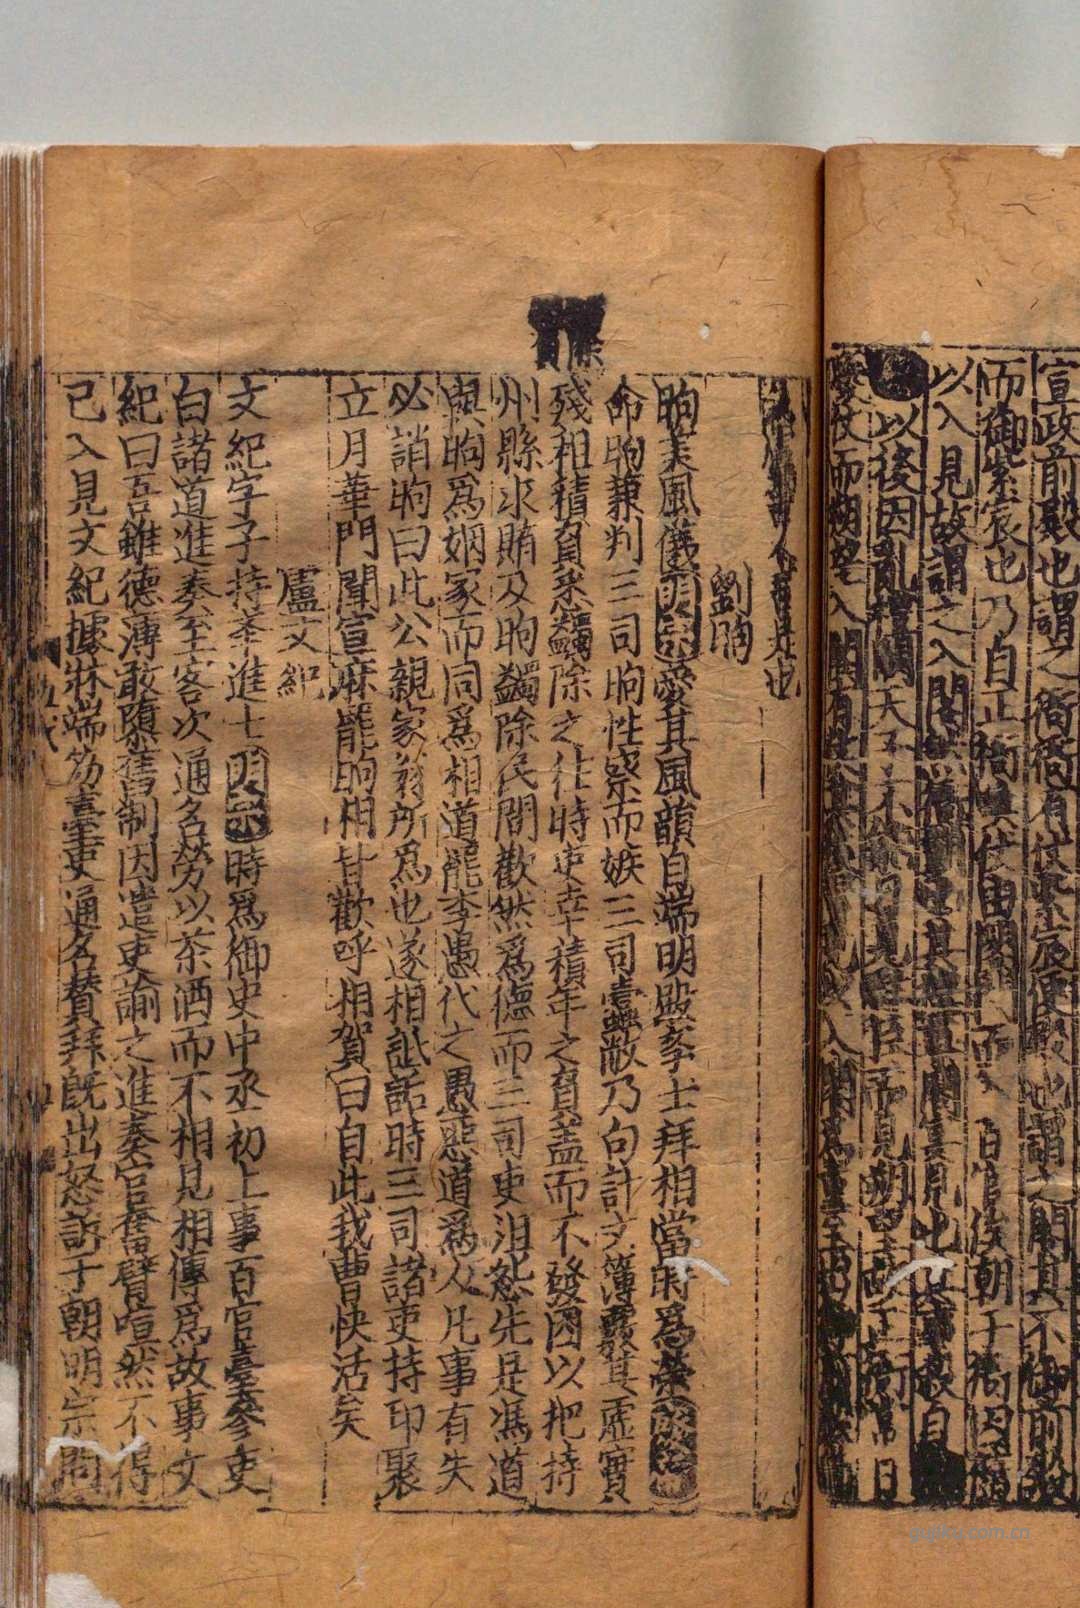 宣政前殿也謂之衙衙有仗紫宸便殿也謂之閤其不御前殿
而御紫宸也乃自正衙喚仗由閤門而入百官俟朝于衙因隨
以入見故謂之入閤然衙朝也其禮尊閤宴見也其事殺自
以後因亂禮闕天子不能日見群臣而見朔望故正衙常日
廢仗而朔望入閤有仗
劉昫
昫美風儀明宗愛其風韻自端明殿學士拜相當時爲榮
命昫兼判三司昫性察而嫉三司蠹敝乃句計文簿覈其虛實
殘租積負悉蠲除之往時吏幸積年之負盖而不發因以把持
州縣求賄及昫蠲除民間歡然爲德而三司吏沮怨先是馮道
與昫爲姻家而同爲相道罷李愚代之愚惡道爲人凡事有失
必誚昫曰此公親家翁所爲也遂相詆詬時三司諸吏持印聚
立月華門聞宣麻罷昫相皆歡呼相賀曰自此我曹快活矣
盧文紀
文紀字子持舉進士明宗時爲御史中丞初上事百官臺參吏
白諸道進奏至客次通名勞以茶酒而不相見相傳爲故事文
紀曰吾雖德薄敢隳舊制因遣吏諭之進奏官奮臂喧然不得
已入見文紀據牀端笏臺吏通名贊拜旣出怒訴于朝明宗問
gujiku.com.cn